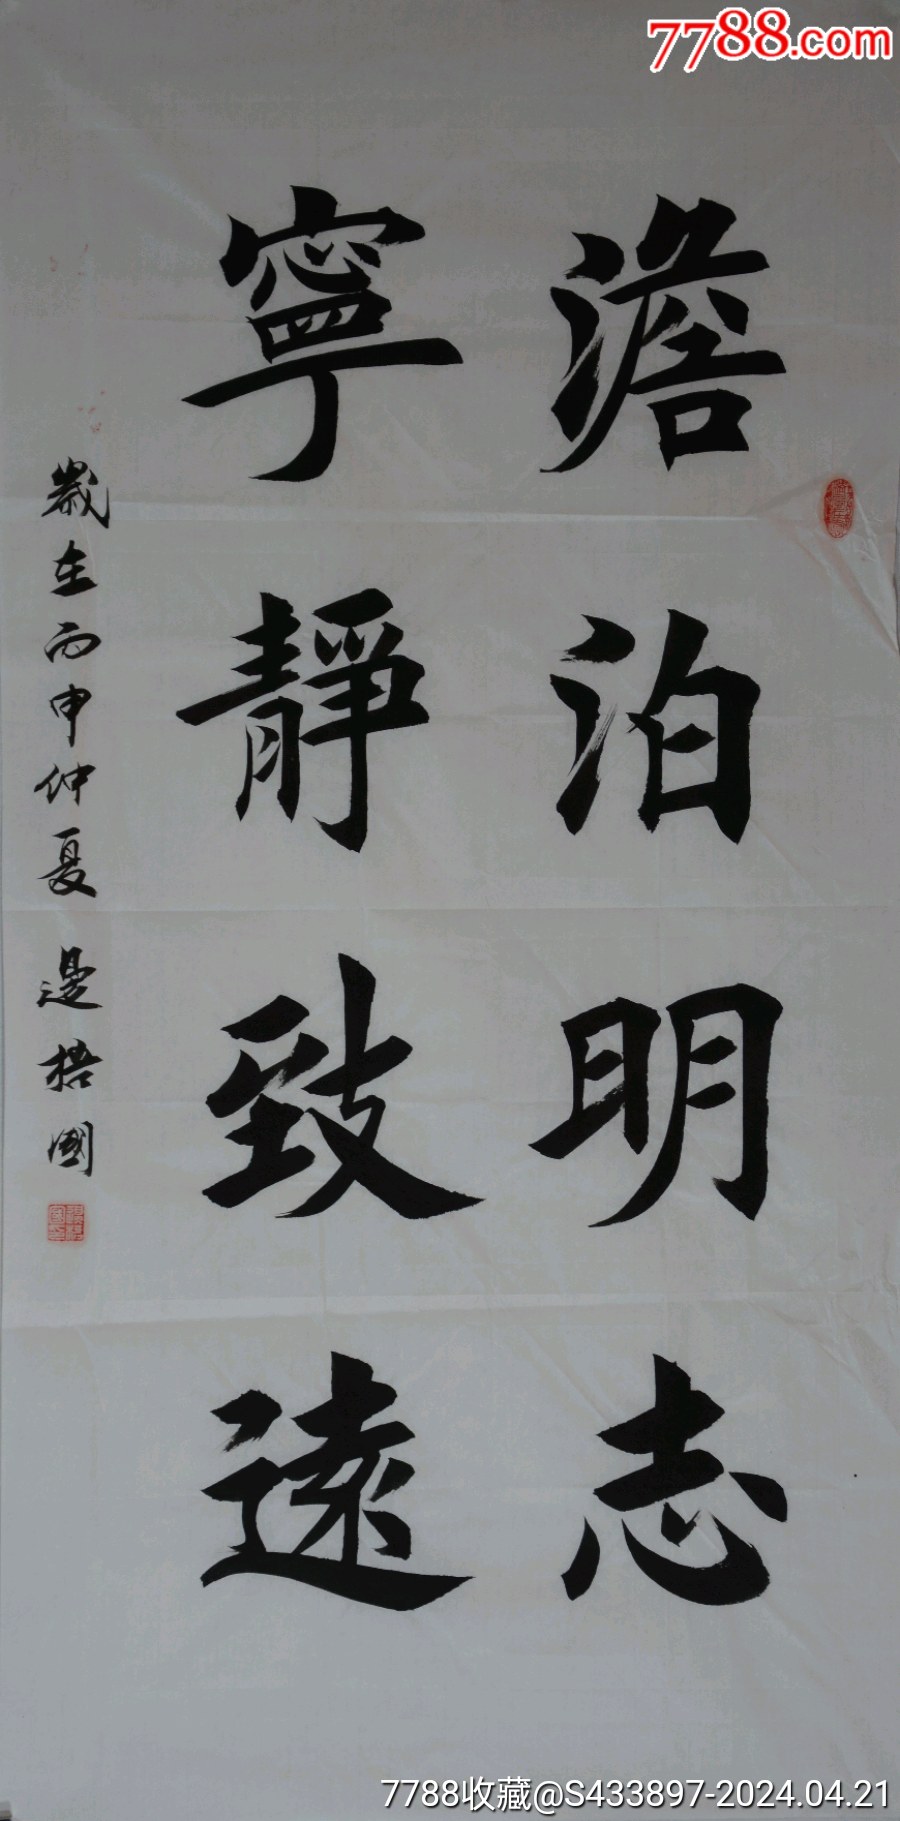 7788.com
澹泊明志
寧靜致遠
歲在丙申仲夏 邊梧國
7788收藏@S433897-2024.04.21